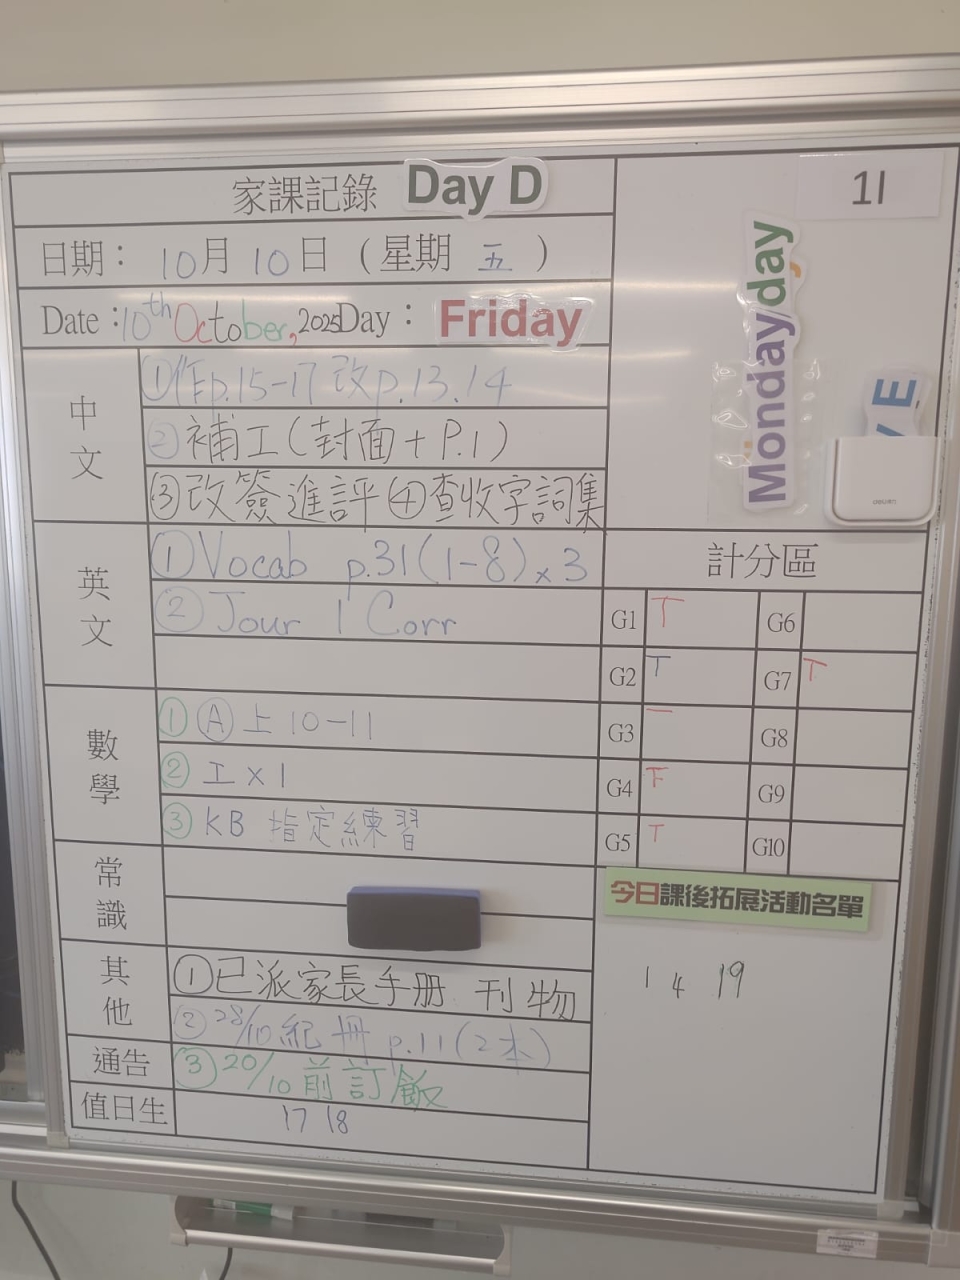 家課記錄 Day D
1I
日期： 10月10日（星期 五 ）
Date：10th October, 2025 Day： Friday
Monday
day
YE
中文
①作p.15-17 改p.13.14
②補工(封面+P.1)
③改簽進評 ④查收字詞集
英文
①Vocab p.31(1-8)×3
②Jour 1 Corr
數學
① Ⓐ上10-11
② 工×1
③ KB 指定練習
常識
其他
①已派家長手册 刊物
②28/10 紀冊 p.11(2本)
通告
③20/10 前訂飯
值日生
17 18
計分區
G1 T G6
G2 T G7 T
G3 一 G8
G4 F G9
G5 T G10
今日課後拓展活動名單
1 4 19